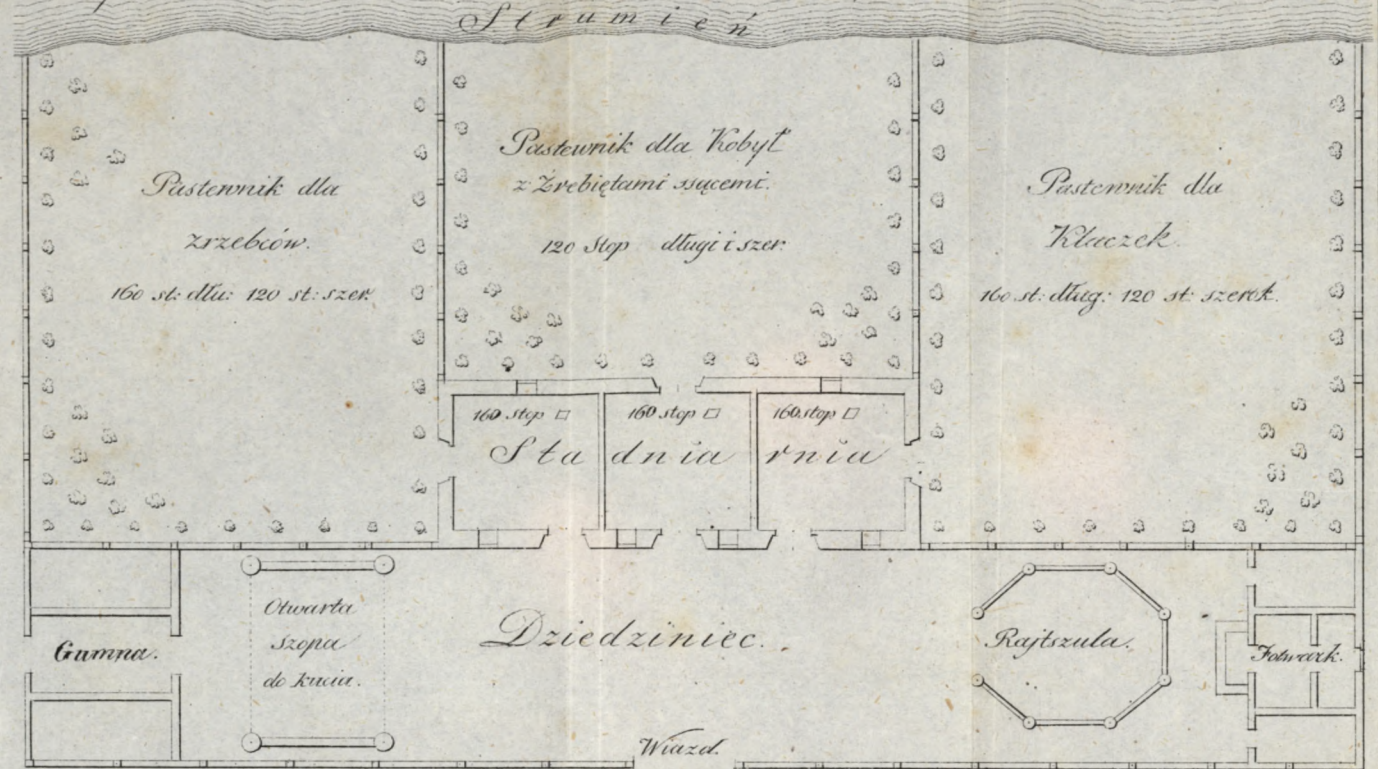 Strumień
Pastewnik dla
zrzebców.
160 st: dłu: 120 st: szer.
Pastewnik dla Kobył
z Źrebiętami ssącemi.
120 Stop długi i szer.
Pastewnik dla
Klaczek.
160 st: dług: 120 st: szerok.
160 stop □
160 stop □
160 stop □
Stadniarnia
Gumna.
Otwarta
szopa
do kucia.
Dziedziniec.
Rajtszula.
Folwark.
Wiazd.